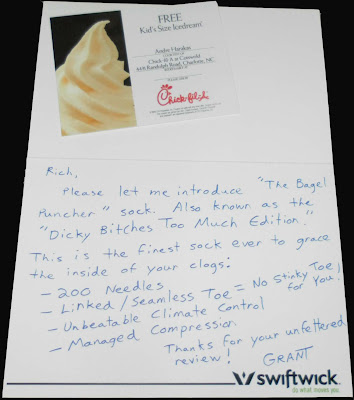 FREE
Kid's Size Icedream®
Chick-fil-A at Cotswold
Randolph Road, Charlotte, NC
Chick-fil-A
Rich,
Please let me introduce "The Bagel
Puncher" sock. Also known as the
"Dicky Bitches Too Much Edition."
This is the finest sock ever to grace
the inside of your clogs:
- 200 Needles
- Linked/Seamless Toe = No Stinky Toe for you!
- Unbeatable Climate Control
- Managed Compression
Thanks for your unfettered
review!
GRANT
swiftwick
do what moves you.